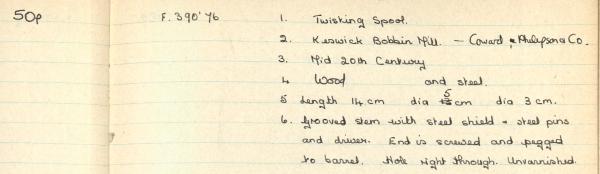 50p F.390'76 1. Twisting Spool.
2. Keswick Bobbin Mill. - Coward & Philipson & Co.
3. Mid 20th Century
4 Wood and steel.
5 Length 14 cm dia 5 cm dia 3 cm.
6. Grooved stem with steel shield + steel pins
and driver. End is screwed and pegged
to barrel. Hole right through. Unvarnished.